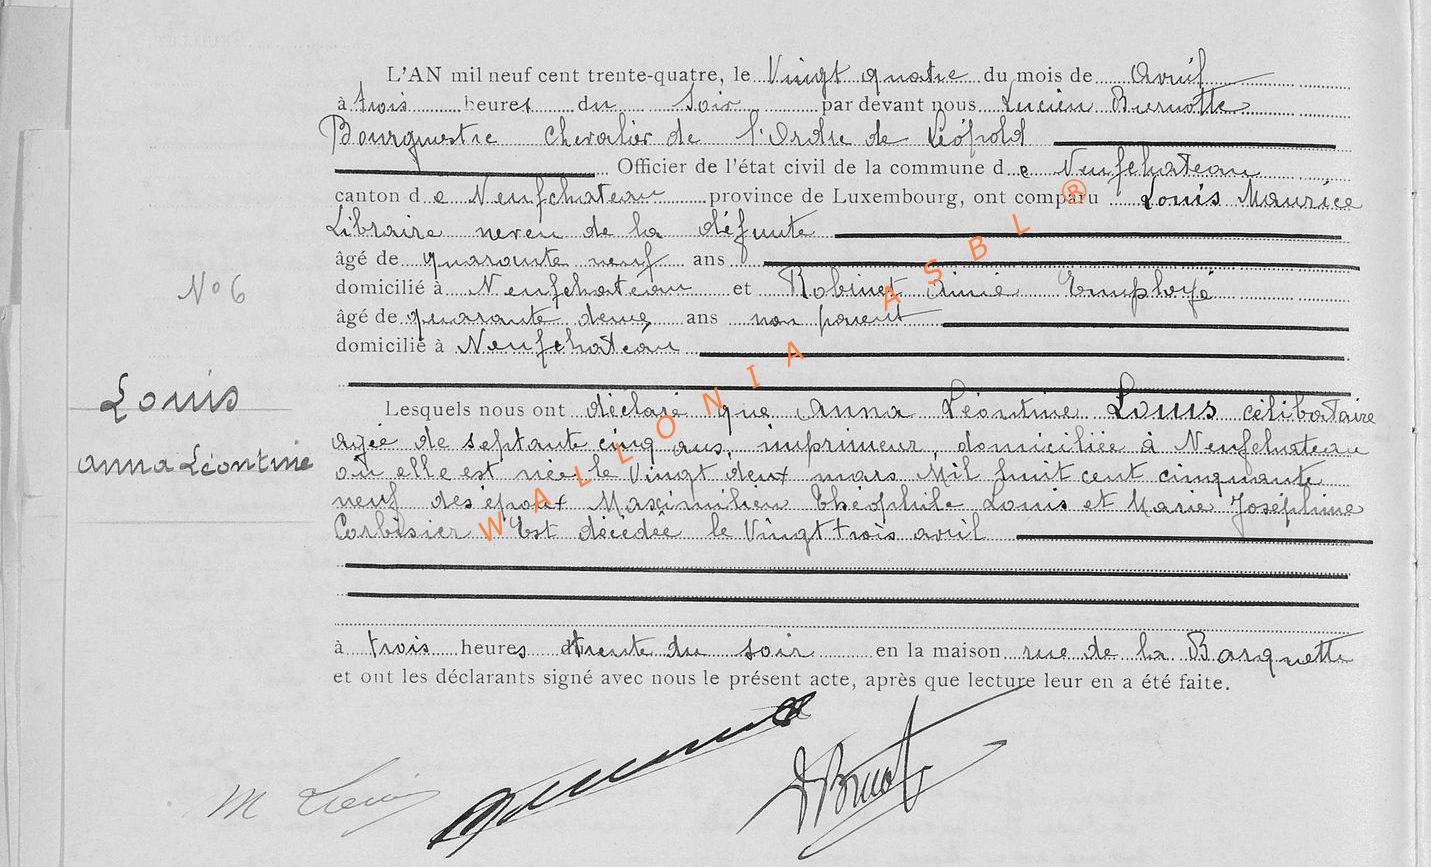 L'AN mil neuf cent trente-quatre, le Vingt quatre du mois de Avril
à trois heures du soir par devant nous Lucien Burnotte
Bourgmestre Chevalier de l'Ordre de Léopold
Officier de l'état civil de la commune de Neufchateau
canton de Neufchateau province de Luxembourg, ont comparu Louis Maurice
Libraire neveu de la défunte
âgé de quarante neuf ans
domicilié à Neufchateau et Robinet Aimé Employé
âgé de quarante deux ans non parent
domicilié à Neufchateau
N° 6
Louis
Anna Léontine
Lesquels nous ont déclaré que Anna Léontine Louis célibataire
agée de septante cinq ans, imprimeur, domiciliée à Neufchateau
où elle est née le Vingt deux mars Mil huit cent cinquante
neuf des époux Maximilien Théophile Louis et Marie Joséphine
Corbisier Est décédée le Vingt trois avril
à trois heures trente du soir en la maison rue de la Barquette
et ont les déclarants signé avec nous le présent acte, après que lecture leur en a été faite.
M Louis
WALLONIA ASBL ®